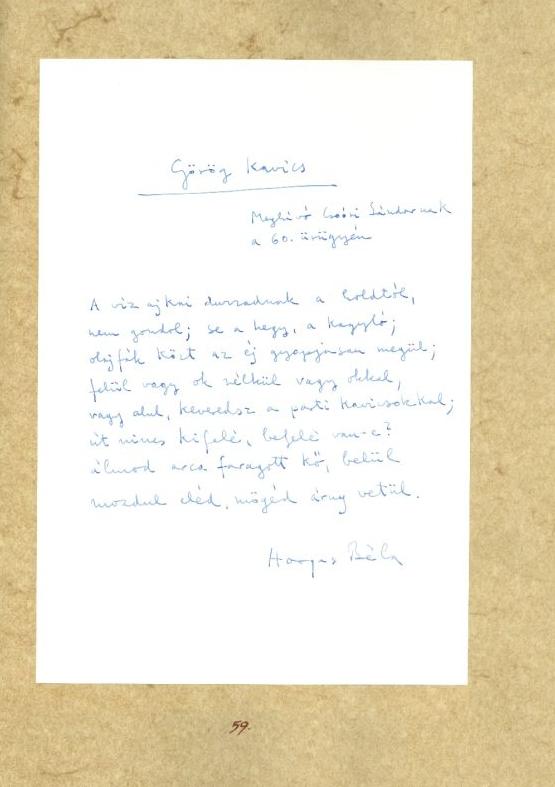 Görög Kavics
Meghívó Csoóri Sándornak
a 60. ürügyén
A víz ajkai duzzadnak a holdtól,
nem gondol; se a hegy, a kagyló;
olajfák közt az éj gyapjasan megül;
felül vagy ok nélkül vagy okkal,
vagy alul, keveredsz a parti kavicsokkal;
út nincs kifelé, befelé van-e?
álmod arca faragott kő, belül
mozdul eléd, mögéd árny vetül.
Horgas Béla
59.